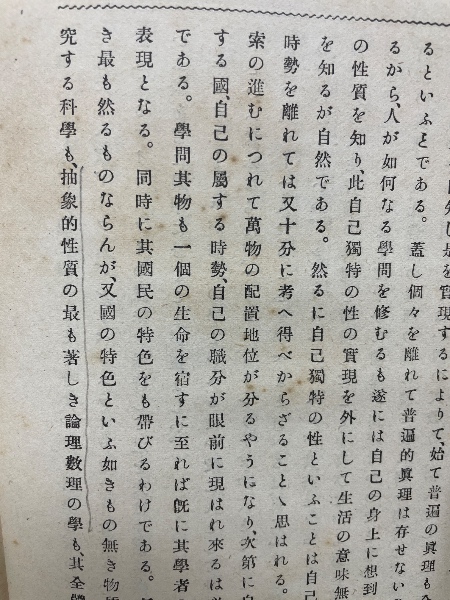 を實現するによりて、始て普遍の眞理も
るといふことである。 蓋し個々を離れて普遍的眞理は存せない
るから、人が如何なる學問を修むるも遂には自己の身上に想到
の性質を知り、此自己獨特の性の實現を外にして生活の意味無
を知るが自然である。 然るに自己獨特の性といふことは自己
時勢を離れては又十分に考へ得べからざることゝ思はれる。
索の進むにつれて萬物の配置地位が分るやうになり、次第に自
する國、自己の屬する時勢、自己の職分が眼前に現はれ來るは
である。 學問其物も一個の生命を宿すに至れば既に其學者
表現となる。 同時に其國民の特色をも帶びるわけである。
き最も然るものならんが、又國の特色といふ如きもの無き物
究する科學も、抽象的性質の最も著しき論理數理の學も、其全